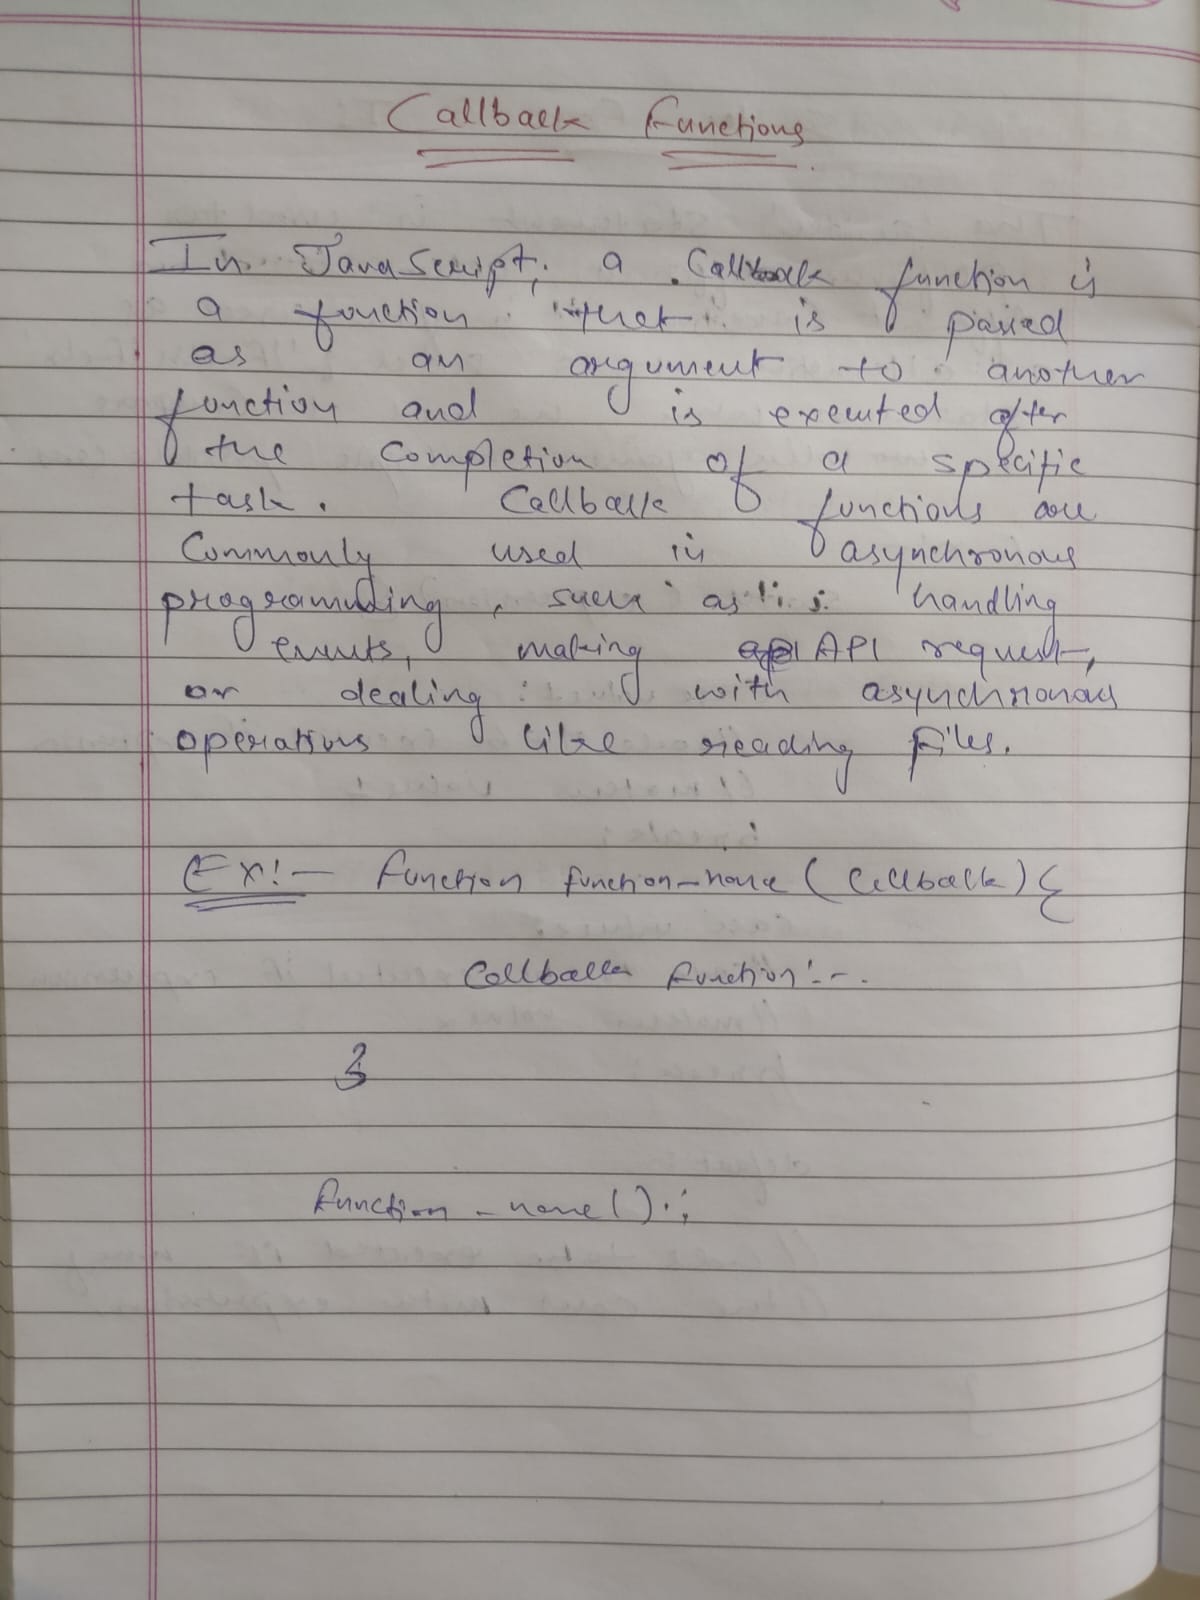 Callback Functions
In JavaScript, a Callback function is
a function that is passed
as an argument to another
function and is executed after
the completion of a specific
task. Callback functions are
Commonly used in asynchronous
programming, such as : handling
events, making API request,
or dealing with asynchronous
operations like reading files.
Ex:- function function-name (Callback) {
Callback function:-.
}
function - name();